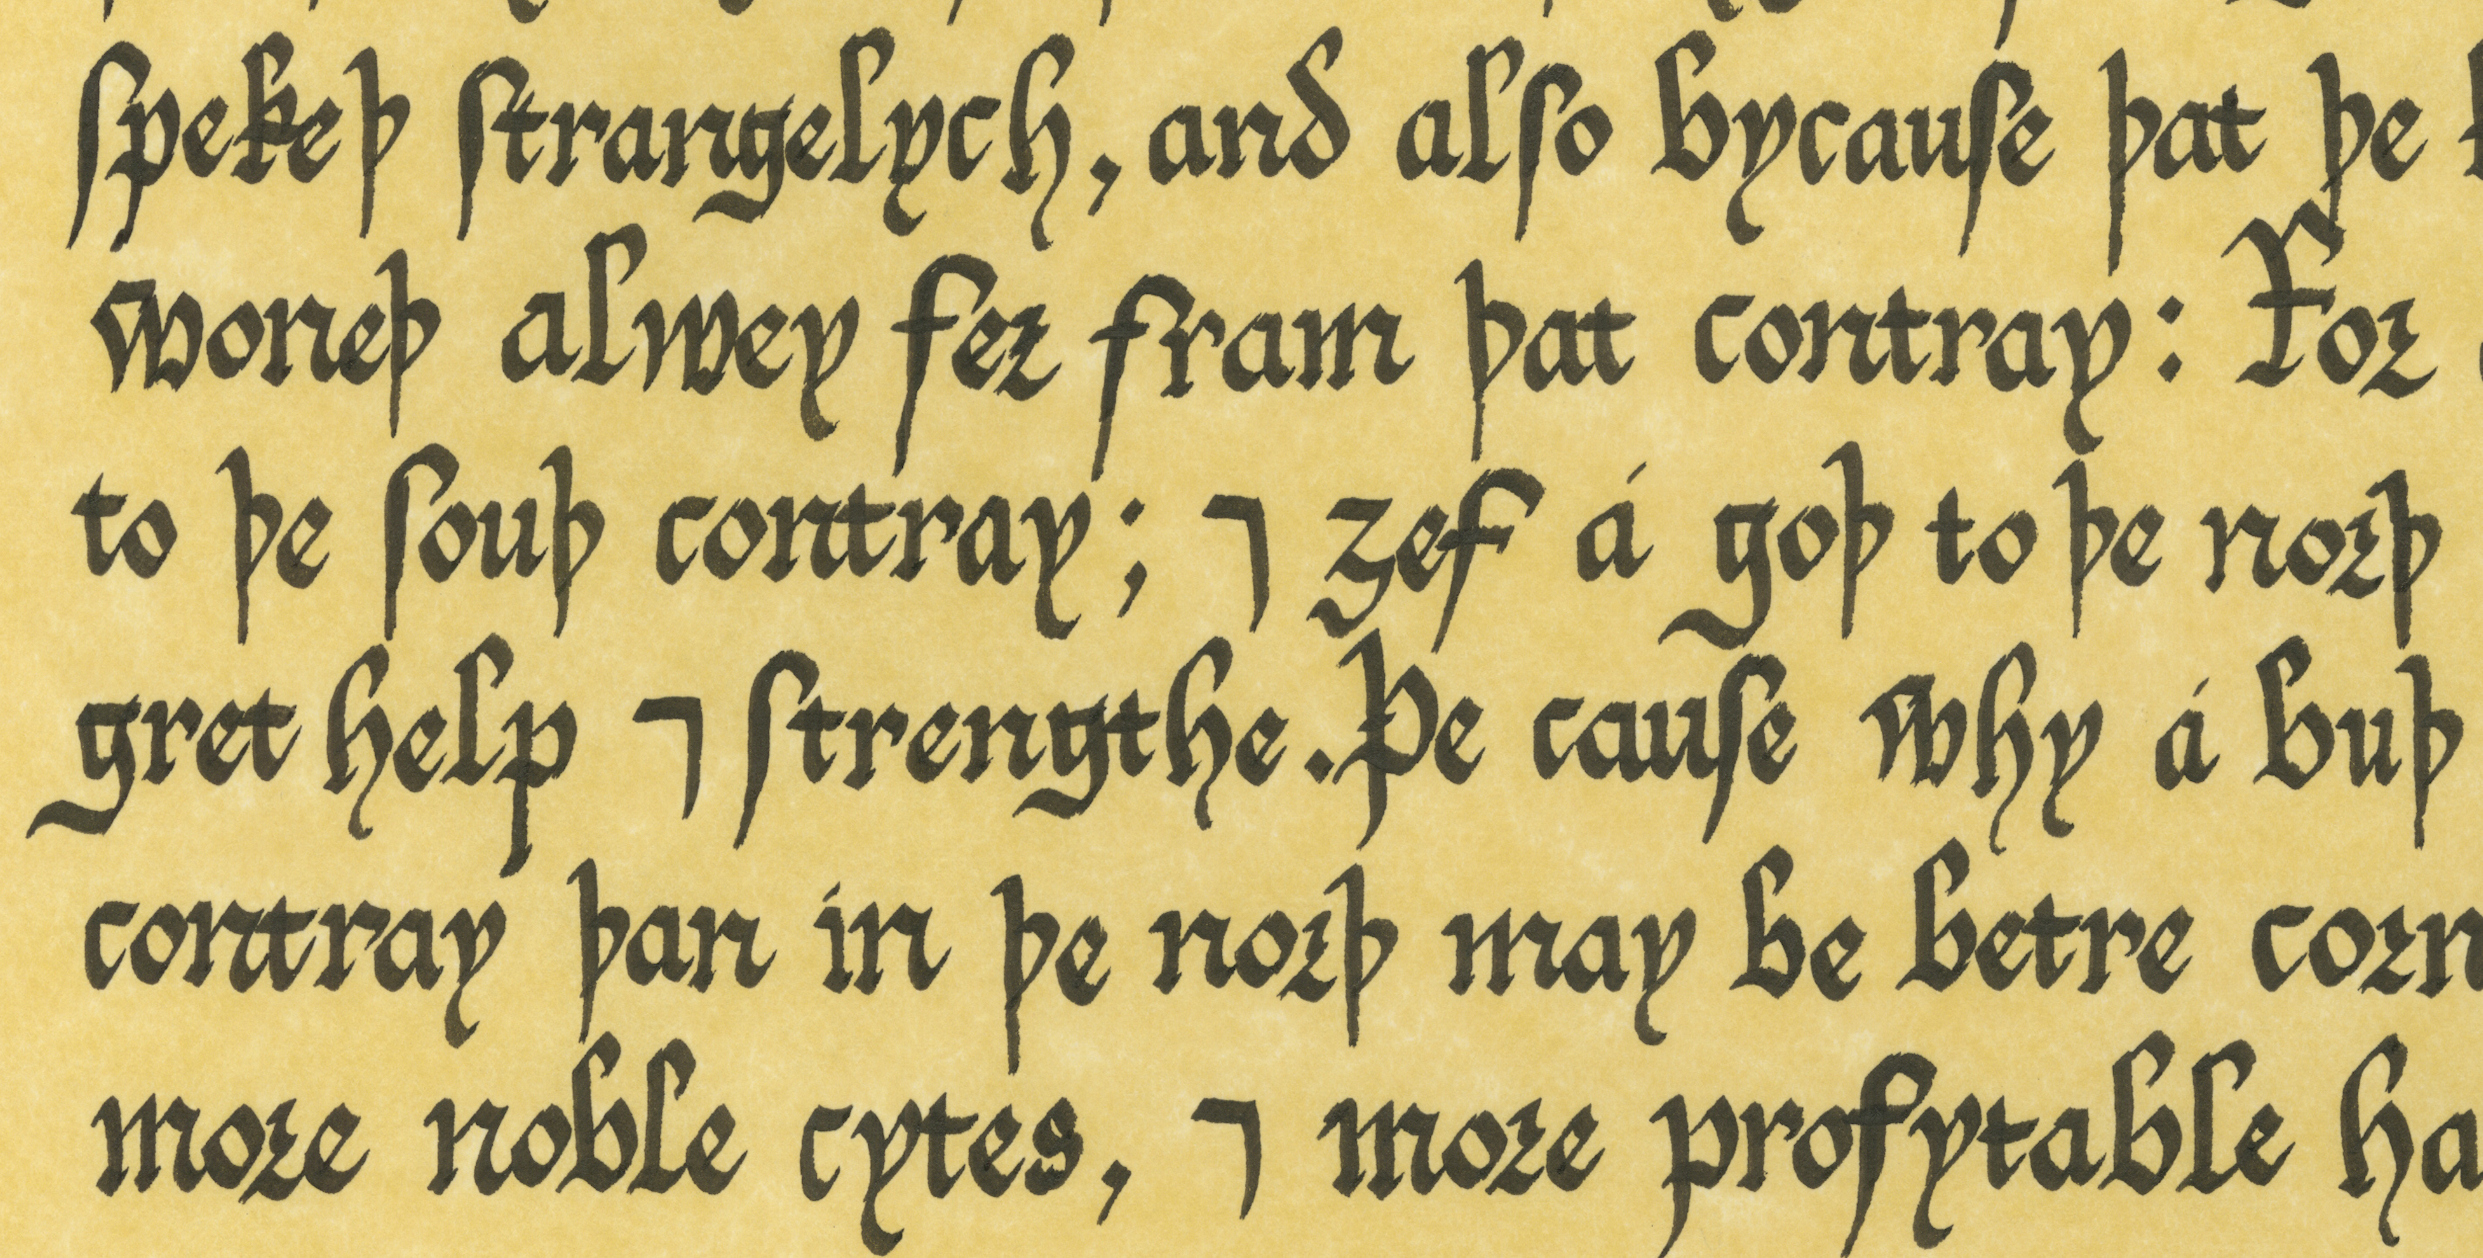 ſpekeþ ſtrangelych, and alſo bycauſe þat þe
woneþ alwey feꝛ fram þat contray: Foꝛ
to þe ſouþ contray; ⁊ ȝef á goþ to þe noꝛþ
gret help ⁊ ſtrengthe. Þe cauſe why á buþ
contray þan in þe noꝛþ may be betre coꝛn
moꝛe noble cytes, ⁊ moꝛe profytable ha